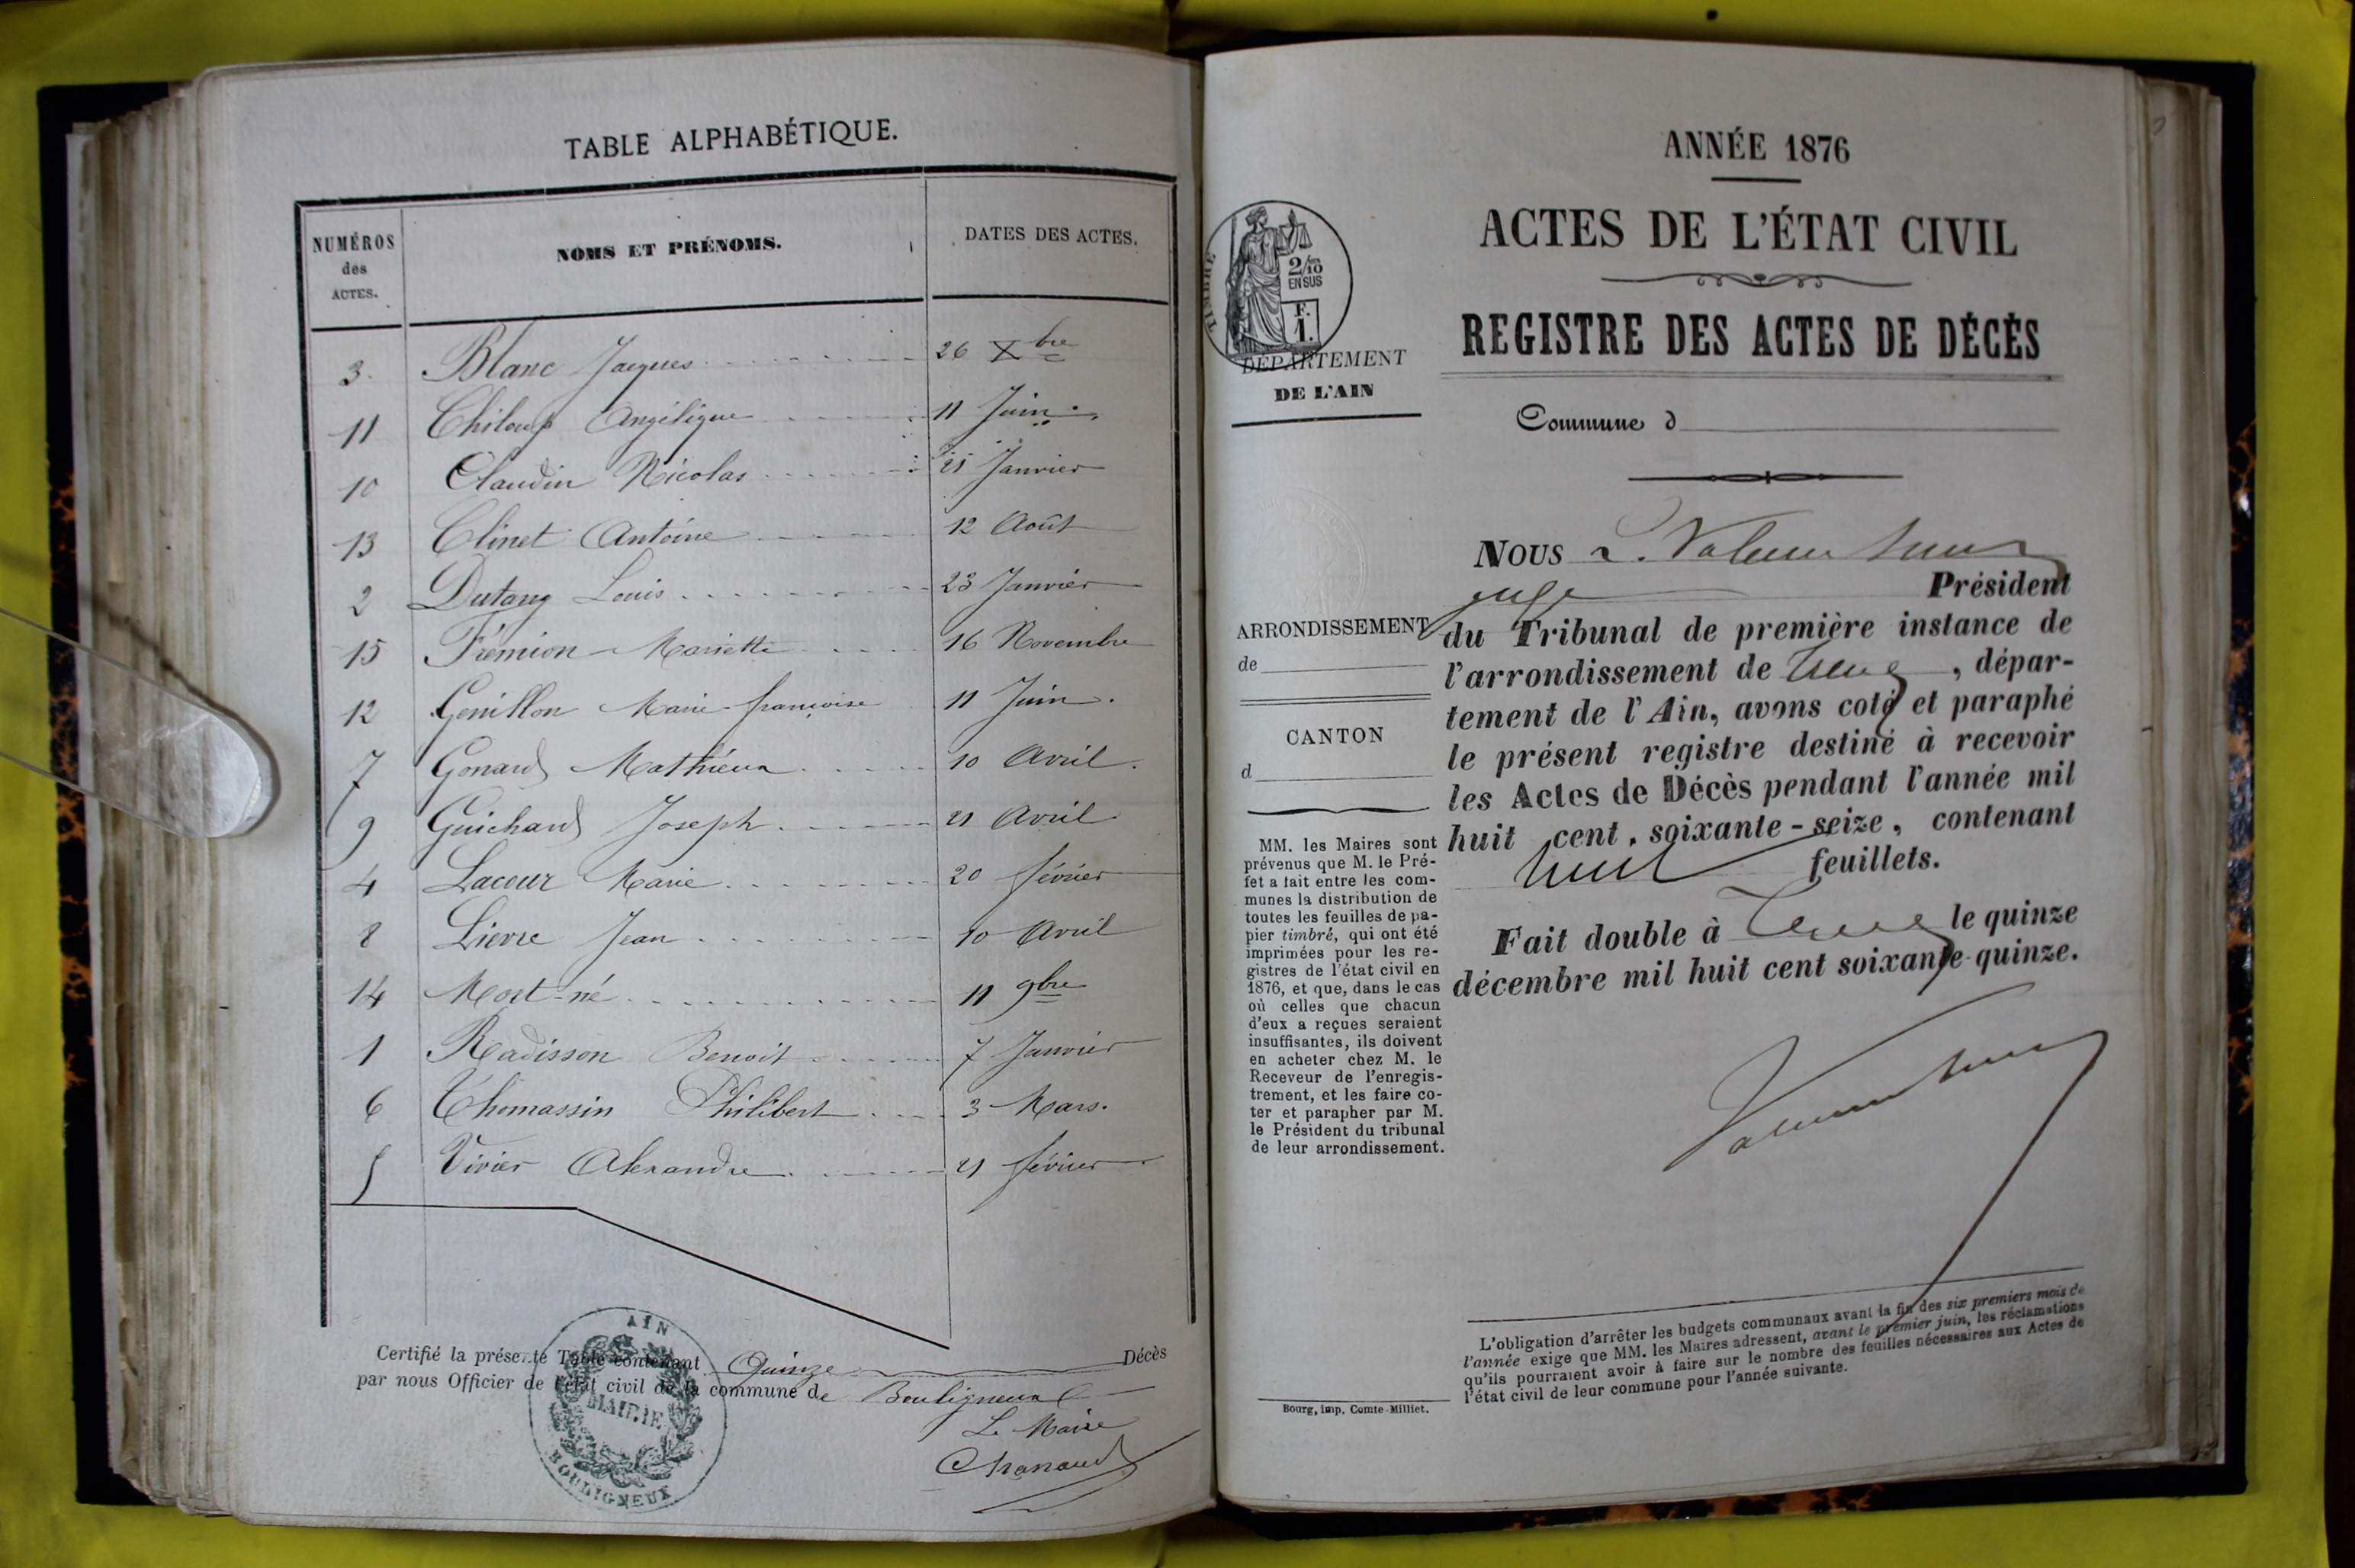 TABLE ALPHABÉTIQUE.
NUMÉROS des ACTES.
NOMS ET PRÉNOMS.
DATES DES ACTES.
3 Blanc Jacques 26 Xbre
11 Chiloup Angélique 11 Juin
10 Claudin Nicolas 21 Janvier
13 Clinet Antoine 12 Août
2 Dutang Louis 23 Janvier
15 Frémion Mariette 16 Novembre
12 Genillon Marie françoise 11 Juin.
7 Gonard Mathieu 10 Avril.
9 Guichard Joseph 21 Avril
4 Lacour Marie 20 février
8 Lievre Jean 10 Avril
14 Mort-né 11 9bre
1 Radisson Benoit 7 Janvier
6 Thomassin Philibert 3 Mars.
5 Vivier Alexandre 21 février
Certifié la présente Table contenant Quinze Décès
par nous Officier de l'état civil de la commune de Bouligneux
Le Maire
Chanaud
AIN
MAIRIE
BOULIGNEUX
ANNÉE 1876
ACTES DE L'ÉTAT CIVIL
REGISTRE DES ACTES DE DÉCÈS
TIMBRE
2/10
EN SUS
F.
1.
DÉPARTEMENT
DE L'AIN
Commune d
ARRONDISSEMENT
de
CANTON
d
MM. les Maires sont
prévenus que M. le Pré-
fet a fait entre les com-
munes la distribution de
toutes les feuilles de pa-
pier timbré, qui ont été
imprimées pour les re-
gistres de l'état civil en
1876, et que, dans le cas
où celles que chacun
d'eux a reçues seraient
insuffisantes, ils doivent
en acheter chez M. le
Receveur de l'enregis-
trement, et les faire co-
ter et parapher par M.
le Président du tribunal
de leur arrondissement.
Nous
juge Président
du Tribunal de première instance de
l'arrondissement de , dépar-
tement de l'Ain, avons coté et paraphé
le présent registre destiné à recevoir
les Actes de Décès pendant l'année mil
huit cent soixante-seize, contenant
huit feuillets.
Fait double à le quinze
décembre mil huit cent soixante-quinze.
L'obligation d'arrêter les budgets communaux avant la fin des six premiers mois de
l'année exige que MM. les Maires adressent, avant le premier juin, les réclamations
qu'ils pourraient avoir à faire sur le nombre des feuilles nécessaires aux Actes de
l'état civil de leur commune pour l'année suivante.
Bourg, imp. Comte-Milliet.